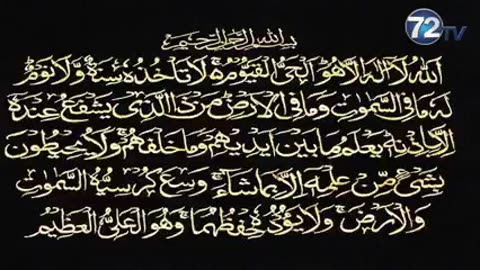 72TV
بسم الله الرحمن الرحيم
اَللّٰهُ لَآ اِلٰهَ اِلَّا هُوَ اَلْحَیُّ الْقَیُّوْمُ ۚ لَا تَاْخُذُهٗ سِنَةٌ وَّلَا نَوْمٌ
لَهٗ مَا فِی السَّمٰوٰتِ وَمَا فِی الْاَرْضِ مَنْ ذَا الَّذِیْ یَشْفَعُ عِنْدَهٗٓ
اِلَّا بِاِذْنِهٖ یَعْلَمُ مَا بَیْنَ اَیْدِیْهِمْ وَمَا خَلْفَهُمْ ۚ وَلَا یُحِیْطُوْنَ
بِشَیْءٍ مِّنْ عِلْمِهٖٓ اِلَّا بِمَا شَآءَ ۚ وَسِعَ كُرْسِیُّهُ السَّمٰوٰتِ
وَالْاَرْضَ ۚ وَلَا یَـُٔوْدُهٗ حِفْظُهُمَا ۚ وَهُوَ الْعَلِیُّ الْعَظِیْمُ